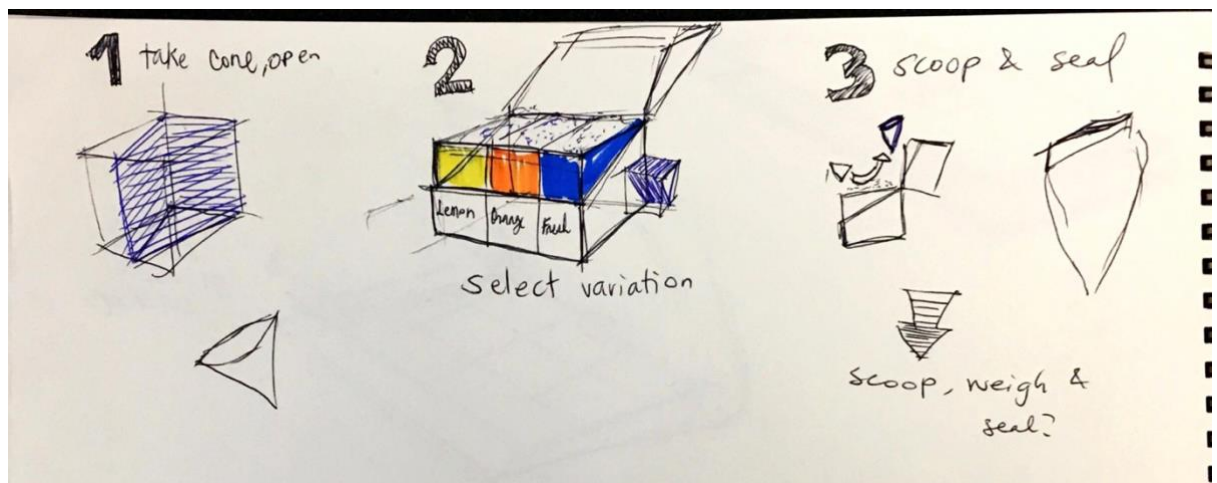 1 take cone, open
2
Lemon
Orange
Fresh
select variation
3 scoop & seal
scoop, weigh &
seal?